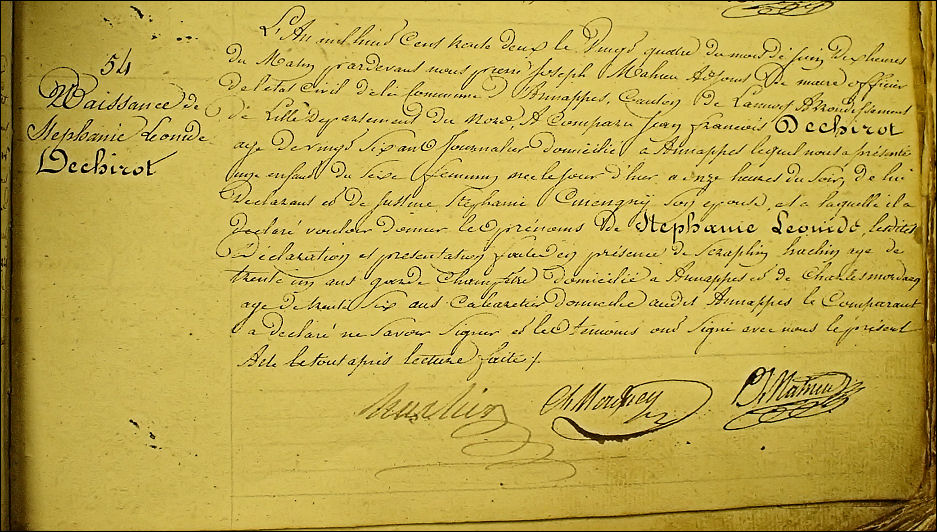 54
Naissance de
Stephanie Leonide
Dechirot
L'An mil huit Cent trente deux le Vingt quatre du mois de juin Dix heures
du Matin pardevant nous pierre Joseph Mahieu Adjoint De maire officier
de letat Civil de la Commune D'Annappes, Canton De Lannoy Arrondissement
de Lille Departement du Nord, A Comparu Jean francois Dechirot
age de vingt Six ans Journalier domicilié a Annappes lequel nous a présenté
une enfant du Sexe feminin née le jour d'hier a onze heures du Soir, de lui
Declarant et de Justine Stéphanie Son epouse, et a laquelle il a
declaré vouloir donner les prénoms De Stephanie Leonide, lesdites
Déclaration et presentation faites en présence de Seraphin hachin age de
trente un ans garde Champêtre domicilié a Annappes et de Charles mordacq
age de trente Six ans Cabaretier domicilié audit Annappes le Comparant
a déclaré ne Savoir Signer et les témoins ont Signé avec nous le présent
Acte le tout après lecture faite /.
hachin Ch Mordacq P J Mahieu